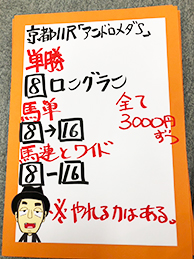 京都11R「アンドロメダS」
単勝
8 ロングラン
馬単
8→16
全て
3000円
ずつ
馬連とワイド
8-16
※やれる力はある。